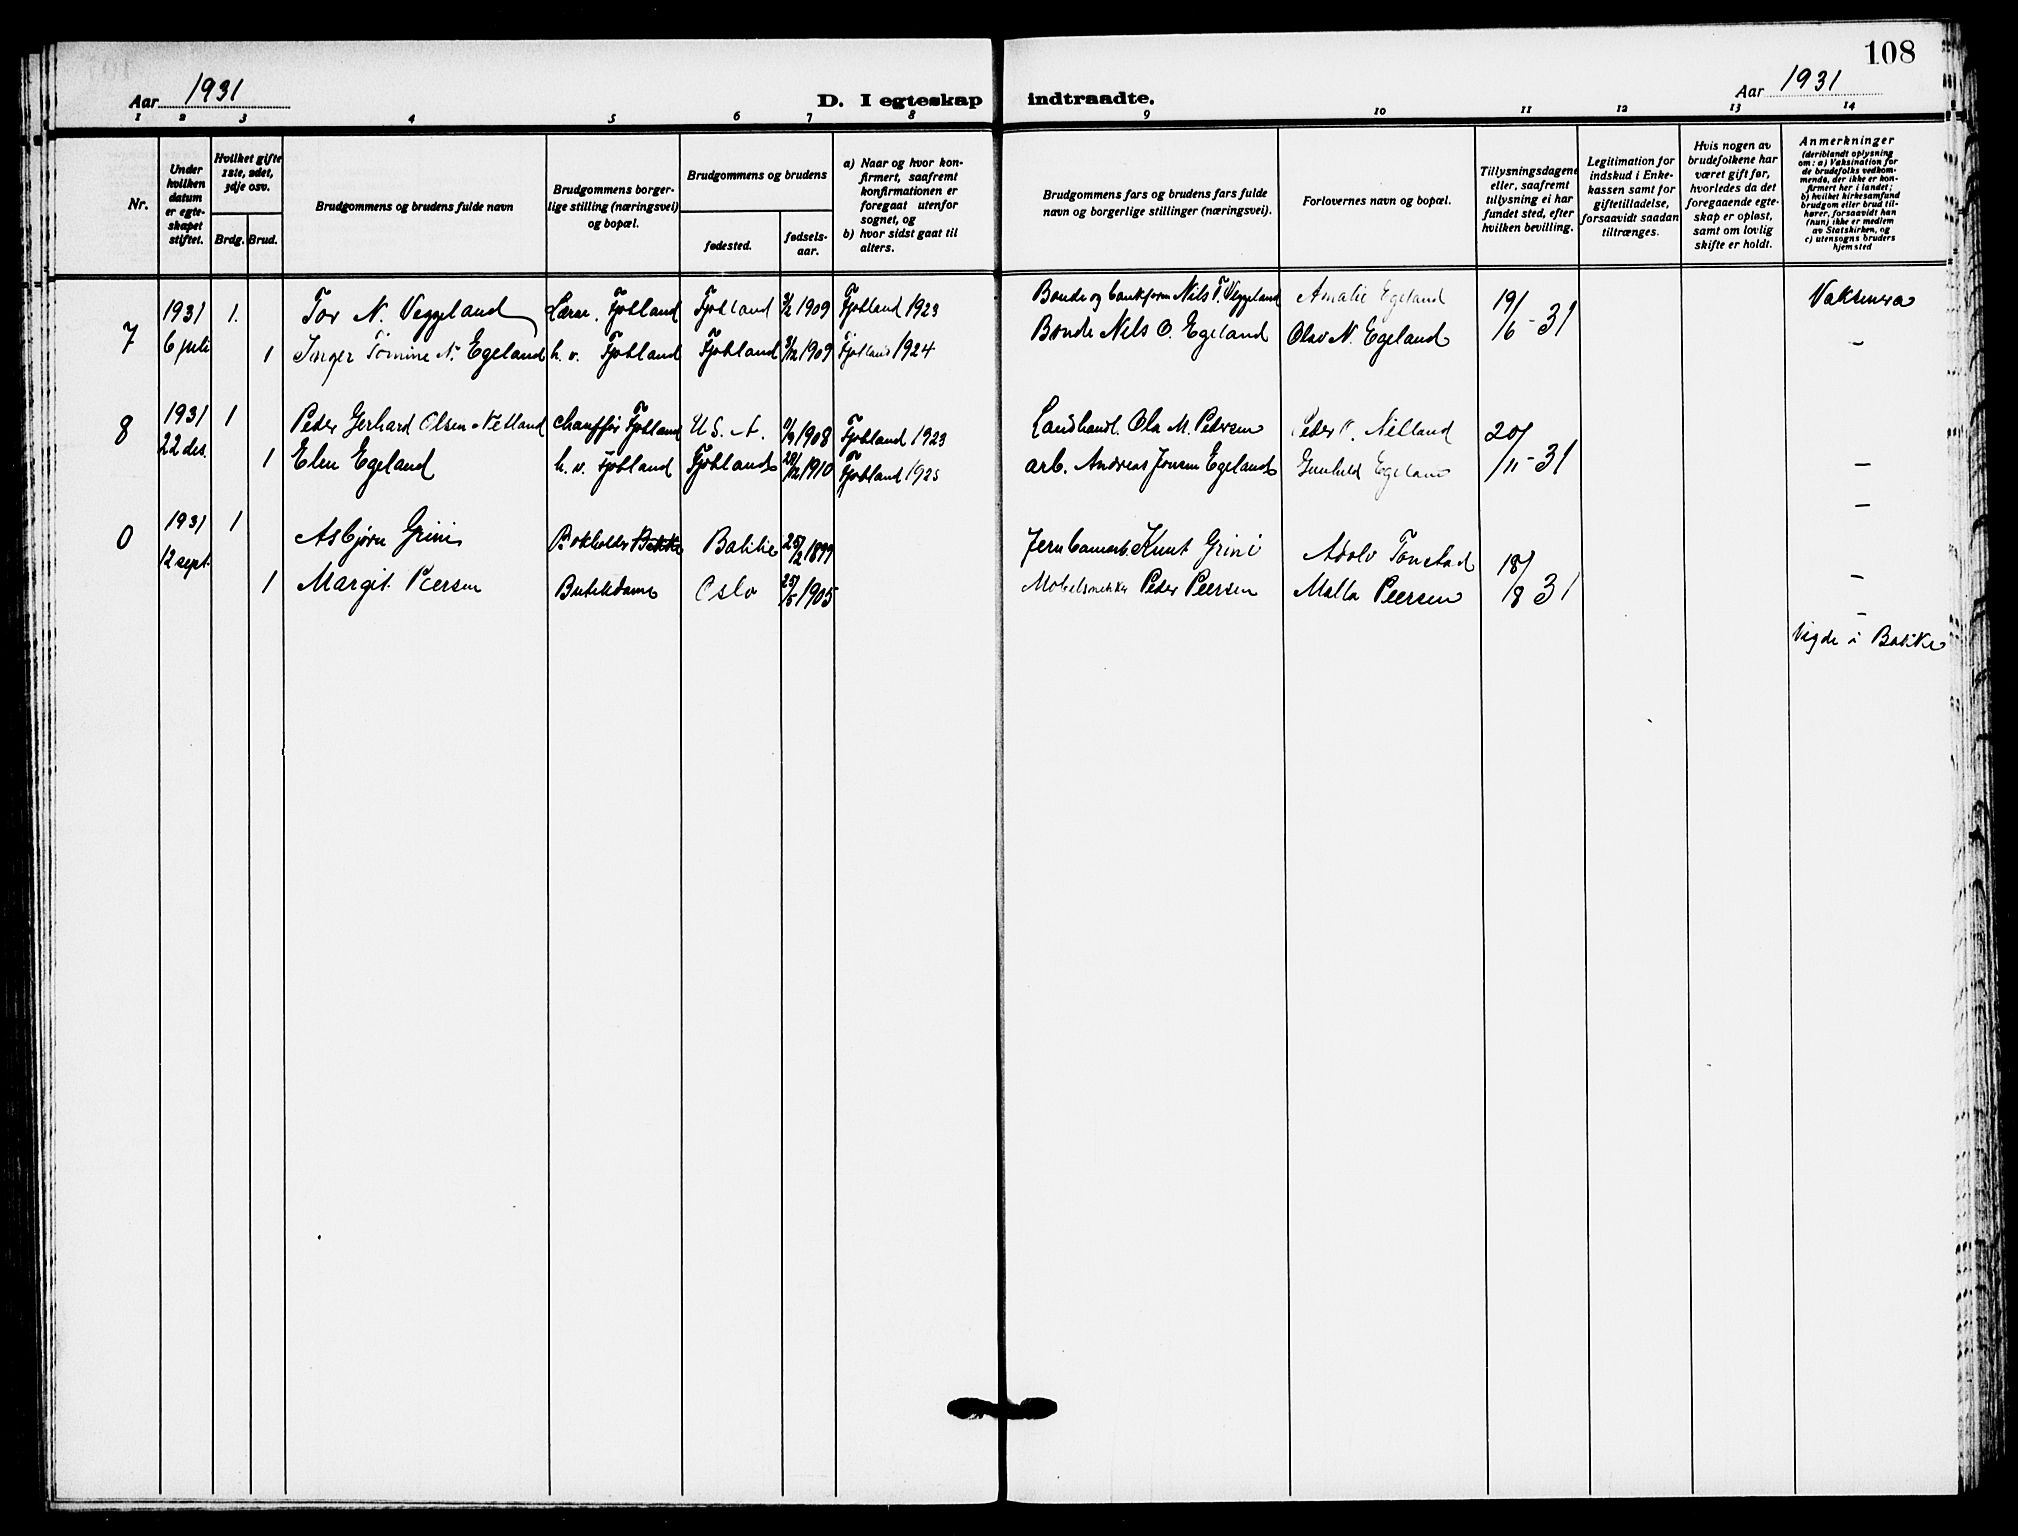 108
Aar 1931
D. I egteskap indtraadte.
Aar 1931
1 2 3 4 5 6 7 8 9 10 11 12 13 14
Nr.
Under hvilken datum er egteskapet stiftet.
Hvilket gifte 1ste, 2det, 3dje osv.
Brdg. Brud.
Brudgommens og brudens fulde navn
Brudgommens borgerlige stilling (næringsvei) og bopæl.
Brudgommens og brudens
fødested.
fødselsaar.
a) Naar og hvor konfirmert, saafremt konfirmationen er foregaat utenfor sognet, og
b) hvor sidst gaat til alters.
Brudgommens fars og brudens fars fulde navn og borgerlige stillinger (næringsvei).
Forlovernes navn og bopæl.
Tillysningsdagene eller, saafremt tillysning ei har fundet sted, efter hvilken bevilling.
Legitimation for indskud i Enkekassen samt for giftetilladelse, forsaavidt saadan tiltrænges.
Hvis nogen av brudefolkene har været gift før, hvorledes da det foregaaende egteskap er opløst, samt om lovlig skifte er holdt.
Anmerkninger
(deriblandt oplysning om: a) Vaksination for de brudefolks vedkommende, der ikke er konfirmert her i landet; b) hvilket kirkesamfund brudgom eller brud tilhører, forsaavidt han (hun) ikke er medlem av Statskirken, og c) utensogns bruders hjemsted
7 1931 1. Tor N. Veggeland Lærer, Fjotland Fjotland 3/2 1909 Fjotland 1923 Bonde og bankform Nils T. Veggeland Amalie Egeland 19/6-31
6 juli 1 Inger Tomine N. Egeland h. v. Fjotland Fjotland 3/12 1909 Fjotland 1924 Bonde Nils O. Egeland Olav N. Egeland -
8 1931 1 Peder Gerhard Olsen Netland Chauffør Fjotland U.S.A. 1908 Fjotland 1923 Landhandl. Ola M. Pedersen Peder Netland 20/11-31
22 des. 1 Elen Egeland h. v. Fjotland Fjotland 20/12 1910 Fjotland 1925 arb. Andreas Jonsen Egeland Gunhild Egeland -
-
0 1931 1 Asbjørn Grini Bokholder Bakke Bakke 25/2 1899 Knut Grini Adolv Tonstad 18/8 31
12 sept. 1 Margit Peersen Butikdame Oslo 25/5 1905 Peder Peersen Malla Peersen -
-
Vigde i Bakke